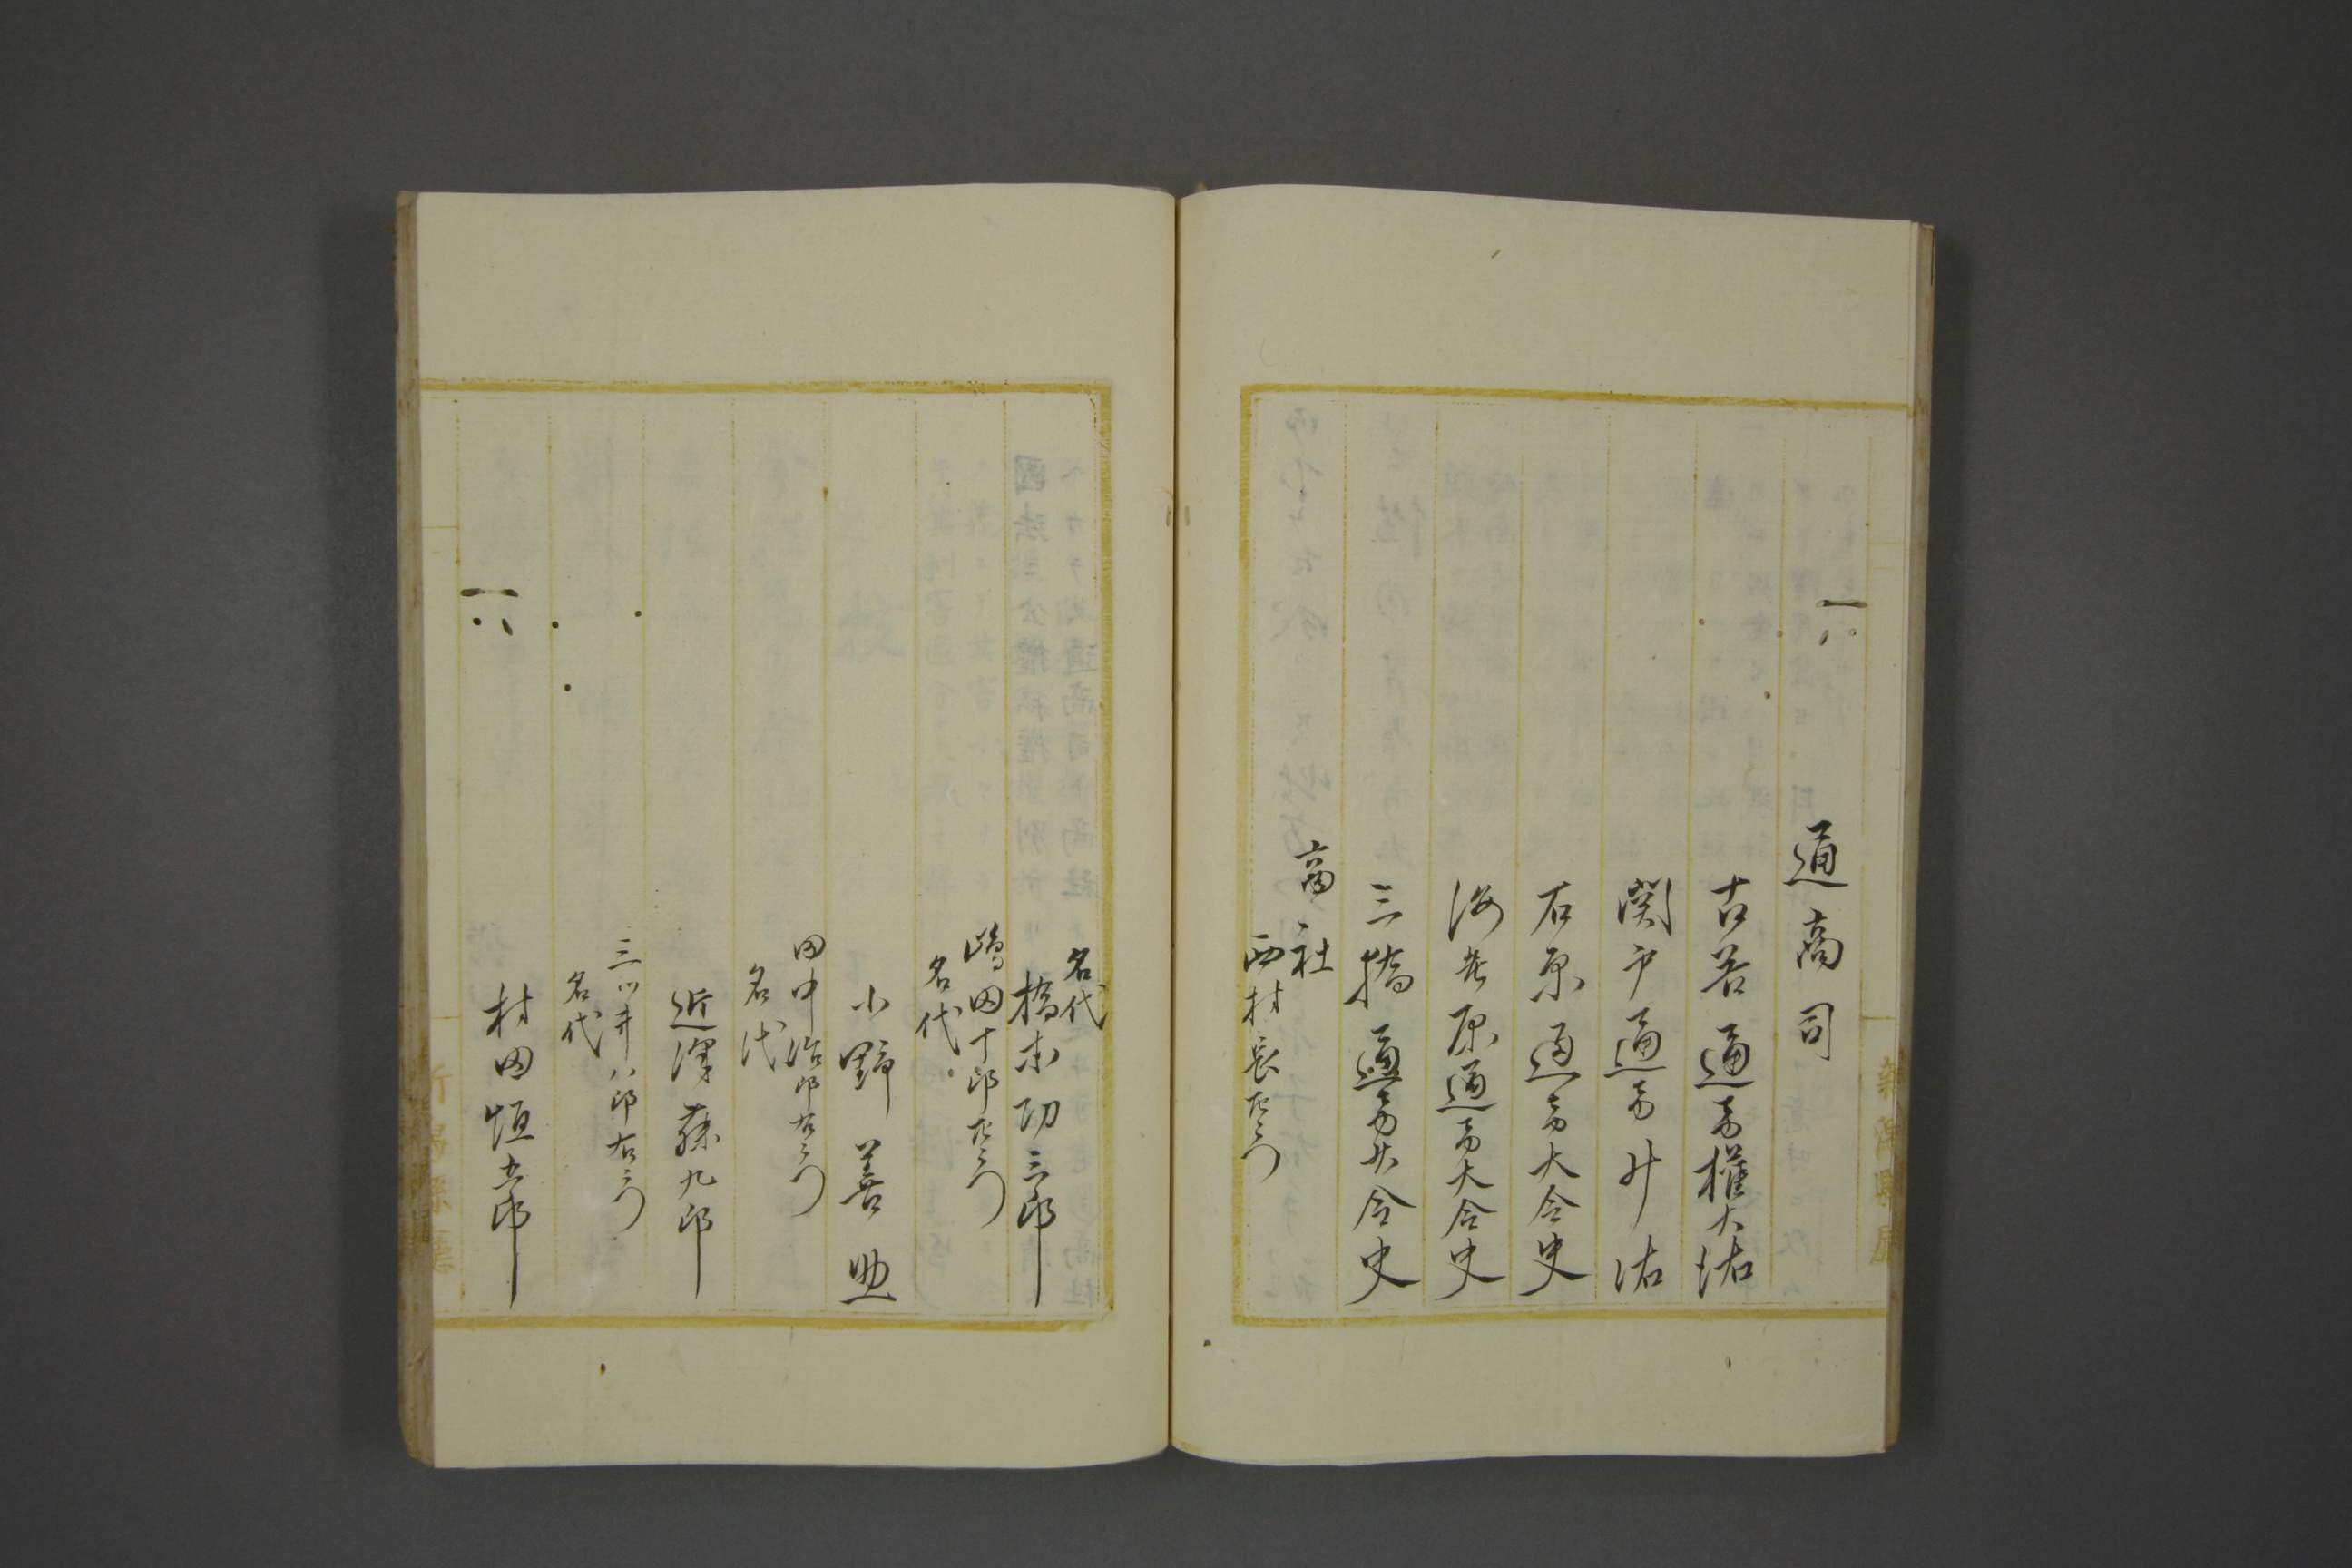 通商司
古谷通商権大佑
関戸通商少佑
石原通商大令史
海老原通商大令史
三橋通商少令史
商社
西村長左衛門
名代
橋本功三郎
嶋田十郎左衛門
名代
小野善助
田中治郎右衛門
名代
近澤藤九郎
三ツ井八郎右衛門
名代
村田恒五郎
新潟縣廳